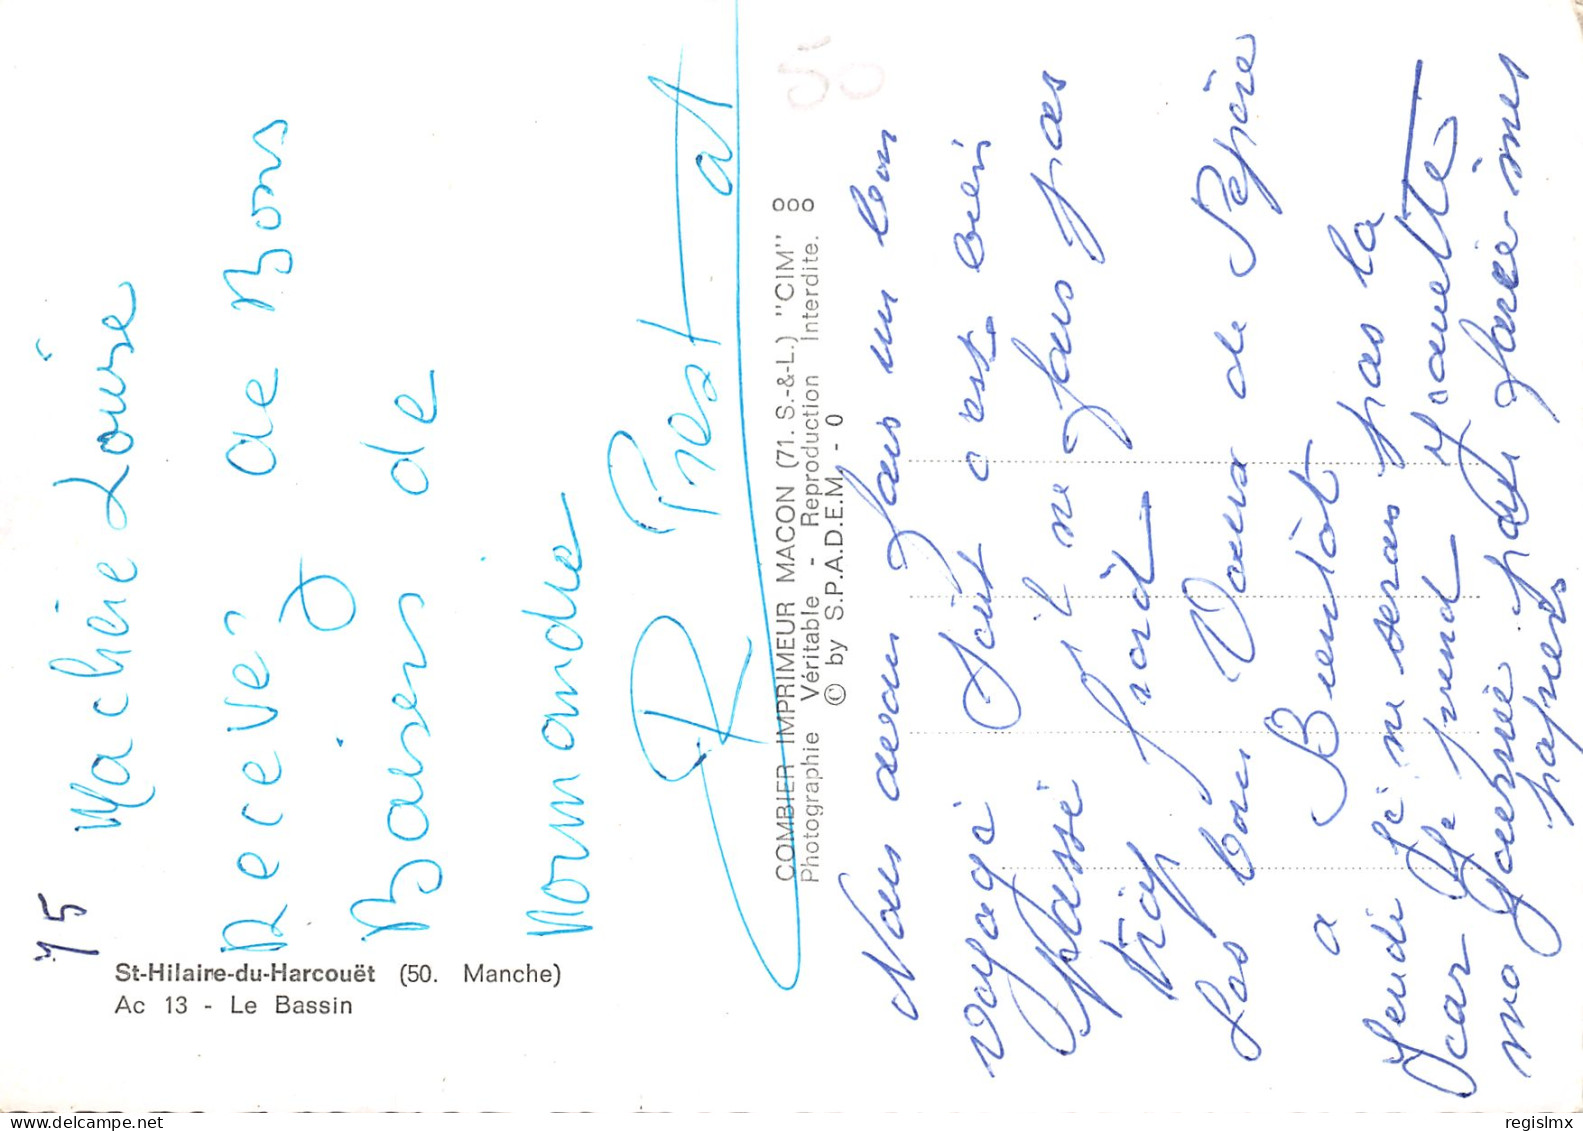 75
Ma chère Louise
recevez
de Bons
Baisers de
Normandie
R Prestat
St-Hilaire-du-Harcouët (50. Manche)
Ac 13 - Le Bassin
COMBIER IMPRIMEUR MACON (71. S.-&-L.) "CIM"
Photographie Véritable - Reproduction Interdite.
© by S.P.A.D.E.M. - 0
Nous avons fais un bon
voyage Tout c'est bien
passé il ne fais pas
trop froid
Les bons Vœux de Pepère
a Bientôt
Jeudi je ne serais pas la
car je prend
ma journée pour faire mes
papiers
delcampe.net
regislmx